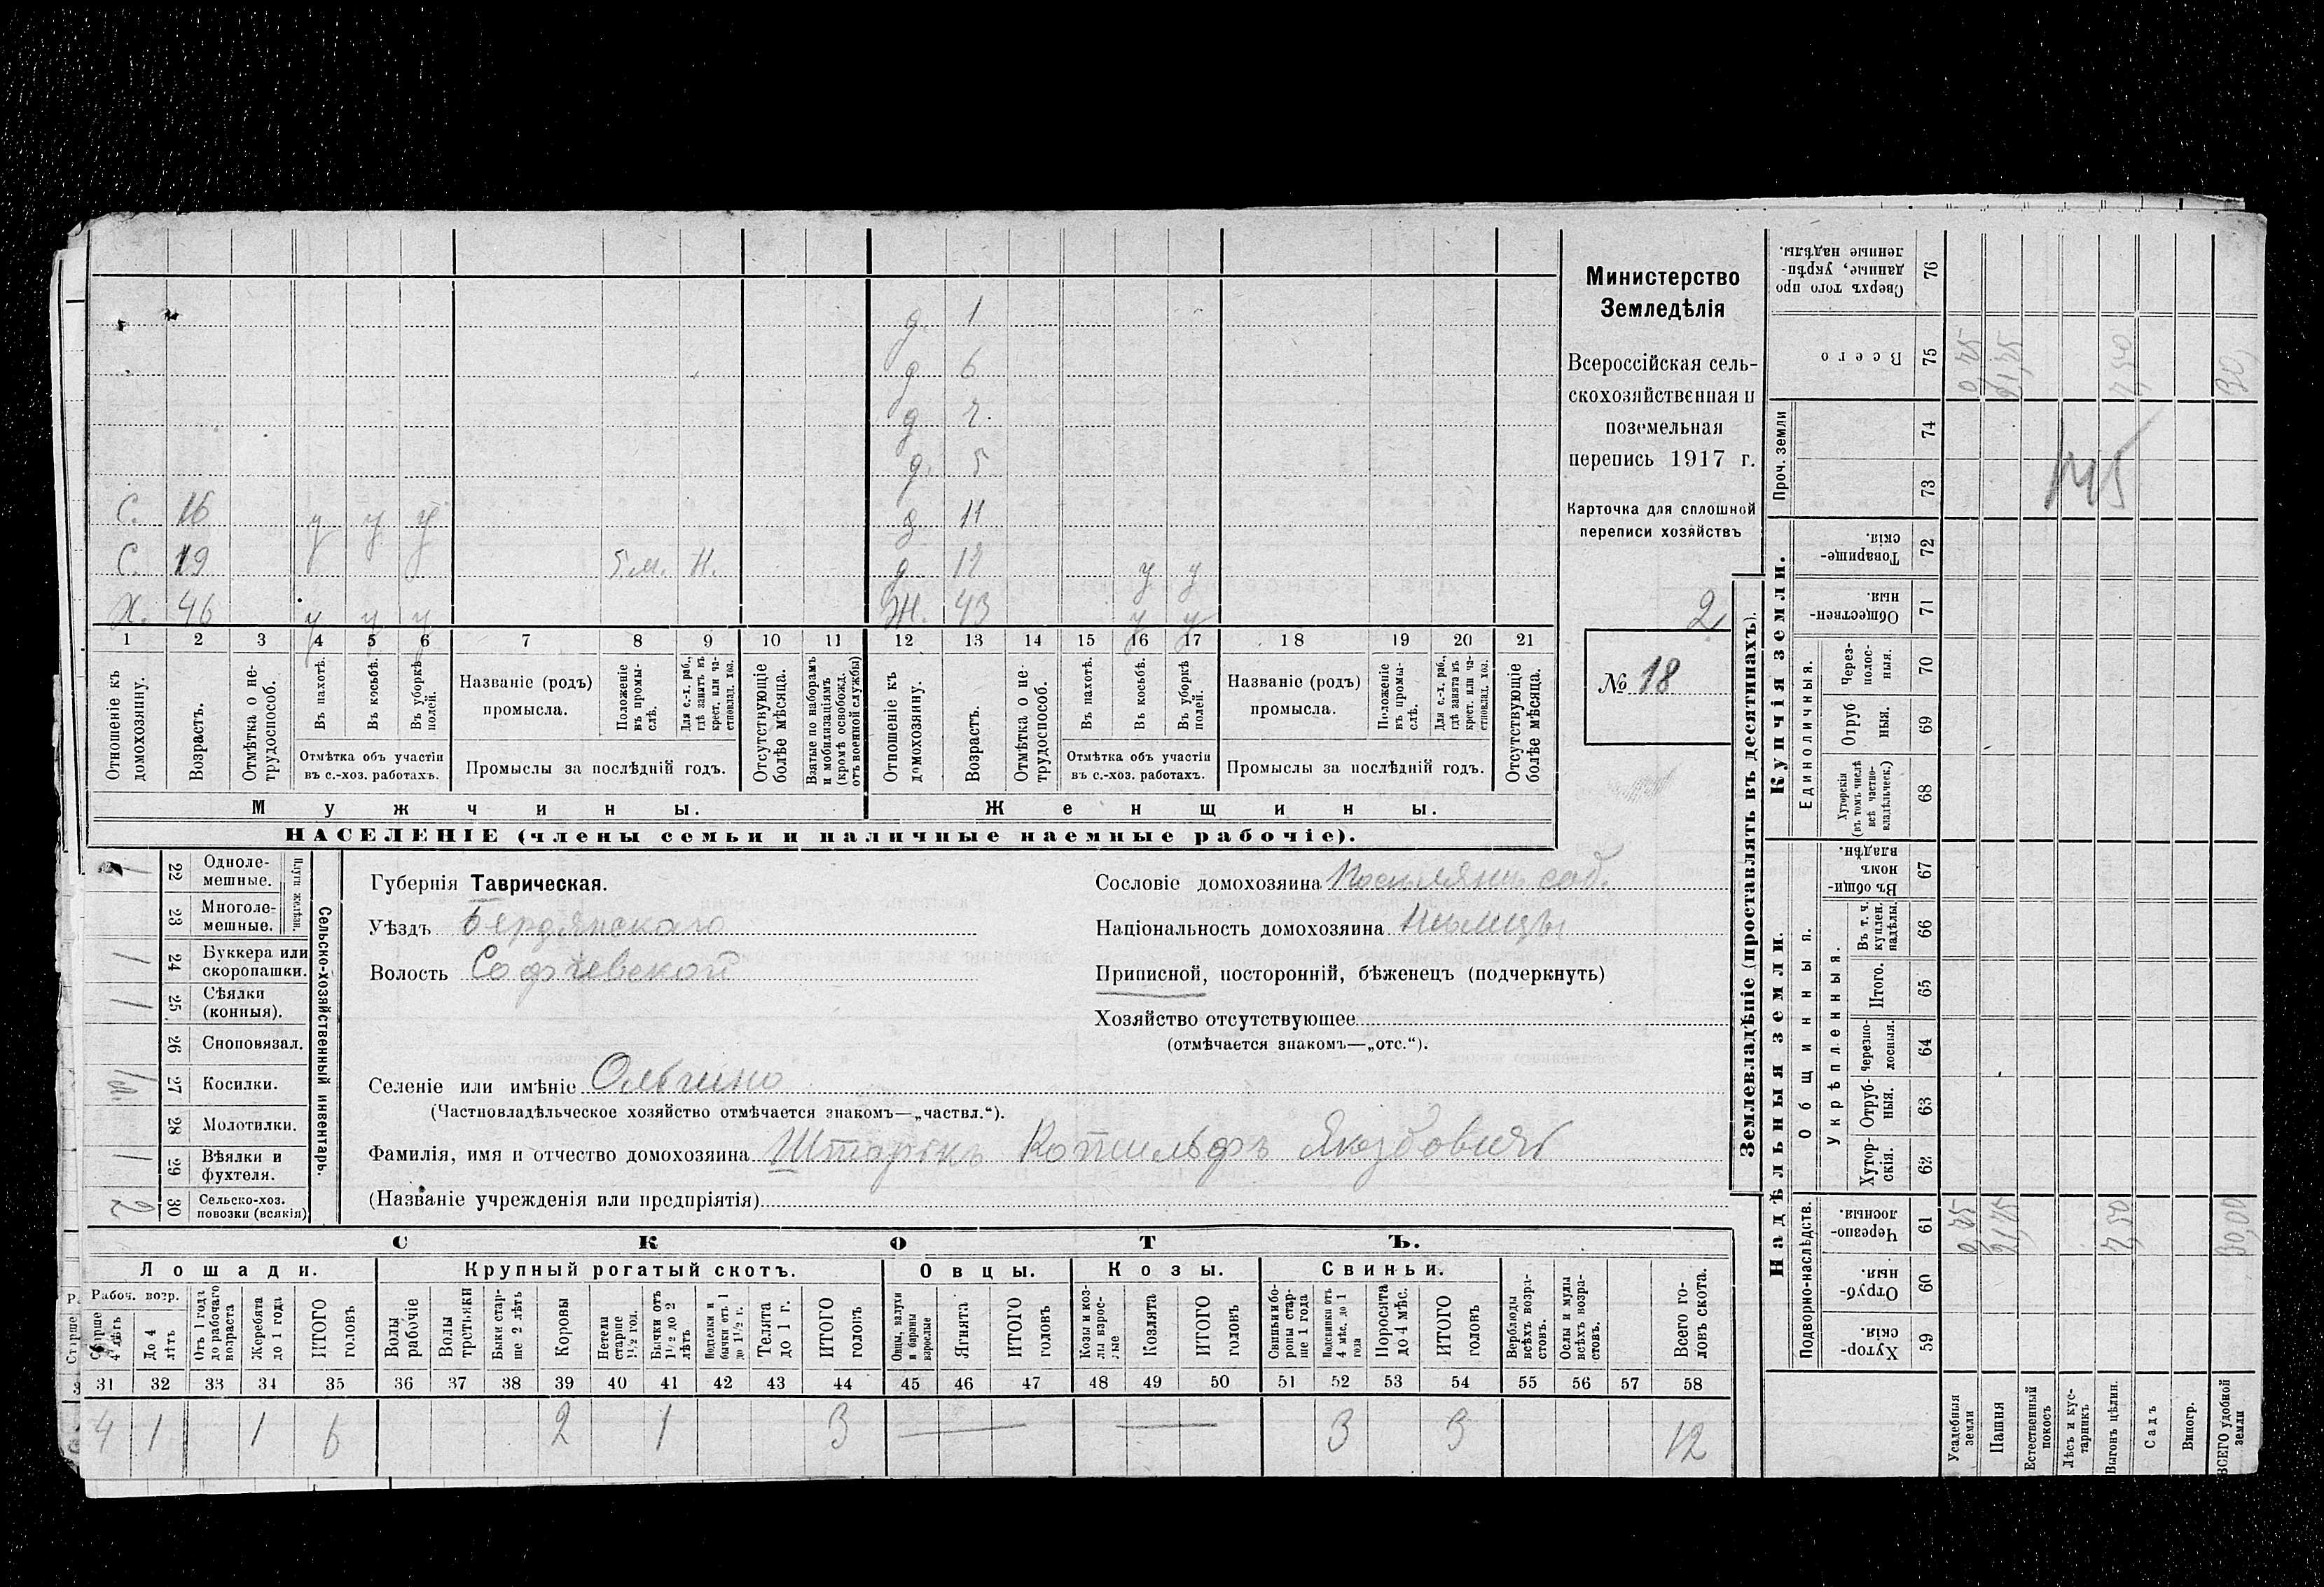 д. 1
д 6
д 7.
д. 5
С. 16 у у у
д. 11
С. 19 5 м. Н.
д. 12 у у
Х. 46 у у у
Ж. 43 у у
1 2 3 4 5 6 7 8 9 10 11 12 13 14 15 16 17 18 19 20 21
Отношеніе къ домохозяину.
Возрастъ.
Отмѣтка о нетрудоспособ.
Въ пахотѣ.
Въ косьбѣ.
Въ уборкѣ полей.
Названіе (родъ) промысла.
Положеніе въ промыслѣ.
Для с.-х. раб., гдѣ занятъ въ крест. или частновлад. хоз.
Отсутствующіе болѣе мѣсяца.
Взятые по наборамъ и мобилизаціямъ (кромѣ освобожд. отъ военной службы)
Отношеніе къ домохозяину.
Возрастъ.
Отмѣтка о нетрудоспособ.
Въ пахотѣ.
Въ косьбѣ.
Въ уборкѣ полей.
Названіе (родъ) промысла.
Положеніе въ промыслѣ.
Для с.-х. раб., гдѣ занята въ крест. или частновлад. хоз.
Отсутствующіе болѣе мѣсяца.
Отмѣтка объ участіи въ с.-хоз. работахъ.
Промыслы за послѣдній годъ.
Отмѣтка объ участіи въ с.-хоз. работахъ.
Промыслы за послѣдній годъ.
Мужчины.
Женщины.
НАСЕЛЕНІЕ (члены семьи и наличные наемные рабочіе).
Министерство
Земледѣлія
Всероссійская сель-
скохозяйственная и
поземельная
перепись 1917 г.
Карточка для сплошной
переписи хозяйствъ
2
№ 18
Сельско-хозяйственный инвентарь.
Плуги желѣзн.
1 22 Одноле-
мешные.
23 Многоле-
мешные.
1 24 Буккера или
скоропашки.
1 25 Сѣялки
(конныя).
26 Сноповязал.
27 Косилки.
28 Молотилки.
1 29 Вѣялки и
фухтеля.
2 30 Сельско-хоз.
повозки (всякія)
Губернія Таврическая.
Уѣздъ Бердянскаго
Волость Софіевской
Сословіе домохозяина Поселянъ соб.
Національность домохозяина Нѣмцы
Приписной, посторонній, бѣженецъ (подчеркнуть)
Хозяйство отсутствующее
(отмѣчается знакомъ—„отс.“).
Селеніе или имѣніе Ольгино
(Частновладѣльческое хозяйство отмѣчается знакомъ—„частвл.“).
Фамилія, имя и отчество домохозяина Штаркъ Готтильфъ Якововичъ
(Названіе учрежденія или предпріятія)
СКОТЪ.
Лошади. Крупный рогатый скотъ. Овцы. Козы. Свиньи.
Рабоч. возр.
Старше 4 лѣтъ
До 4 лѣтъ
Отъ 1 года до рабочаго возраста
Жеребята до 1 года
ИТОГО головъ
Волы рабочіе
Волы третьяки
Быки старше 2 лѣтъ
Коровы
Нетели старше 1½ год.
Бычки отъ 1½ до 2 лѣтъ
Подтелки и бычки отъ 1 до 1½ г.
Телята до 1 г.
ИТОГО головъ
Овцы, валухи и бараны взрослые
Ягнята
ИТОГО головъ
Козы и козлы взрослые
Козлята
ИТОГО головъ
Свиньи и боровы старше 1 года
Подсвинки отъ 4 мѣс. до 1 года
Поросята до 4 мѣс.
ИТОГО головъ
Верблюды всѣхъ возрастовъ.
Ослы и мулы всѣхъ возрастовъ.
Всего головъ скота.
31 32 33 34 35 36 37 38 39 40 41 42 43 44 45 46 47 48 49 50 51 52 53 54 55 56 57 58
4 1 1 6 2 1 3 — — 3 3 12
Землевладѣніе (проставлять въ десятинахъ).
Надѣльныя земли.
Купчія земли.
Проч. земли
Подворно-наслѣдств.
Общинныя.
Укрѣпленныя.
Единоличныя.
Сверхъ того проданные, укрѣпленные надѣлы. 76
Всего 75 0,75 21,75 7,50 30,
74
73
145
Товарищескія. 72
Общественныя. 71
Черезполосныя. 70
Отрубныя. 69
Хуторскія (въ томъ числѣ всѣ частновладѣльческ.) 68
Въ общинномъ владѣн. 67
Въ т. ч. куплен. надѣлы. 66
Итого. 65
Черезполосныя. 64
Отрубныя. 63
Хуторскія. 62
Черезполосныя. 61 0,75 21,75 7,50 30,00
Отрубныя. 60
Хуторскія. 59
Усадебныя земли
Пашня
Естественный покосъ
Лѣсъ и кустарникъ
Выгонъ цѣлин.
Садъ
Виногр.
ВСЕГО удобной земли